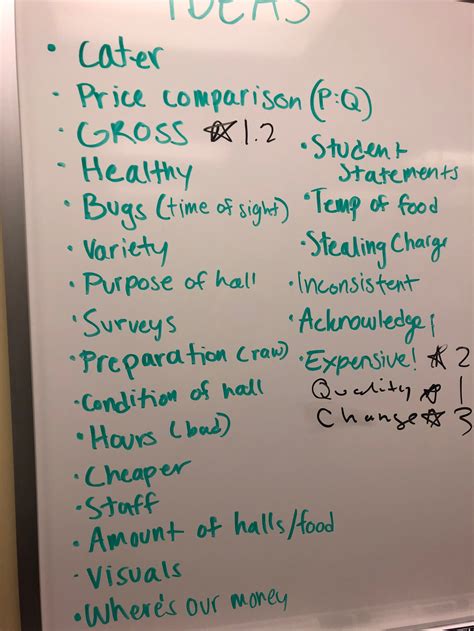 IDEAS
• Cater
• Price comparison (P:Q)
• GROSS ☆ 1.2
• Healthy
• Bugs (time of sight)
• Variety
• Purpose of hall
• Surveys
• Preparation (raw)
• Condition of hall
• Hours (bad)
• Cheaper
• Staff
• Amount of halls/food
• Visuals
• Where's our money
• Student
Statements
• Temp of food
• Stealing Charge
• Inconsistent
• Acknowledge
• Expensive! ☆ 2
Quality ☆ 1
Change ☆ 3